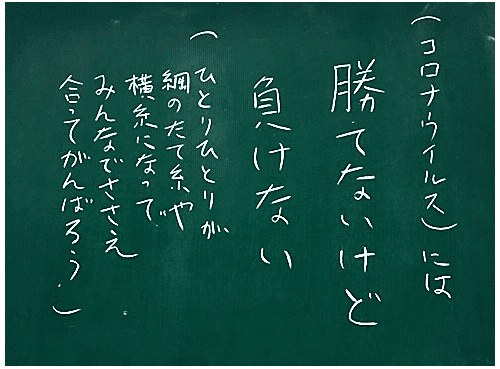 (コロナウイルス)には
勝てないけど
負けない
(ひとりひとりが
網のたて糸や
横糸になって
みんなでささえ
合ってがんばろう。)